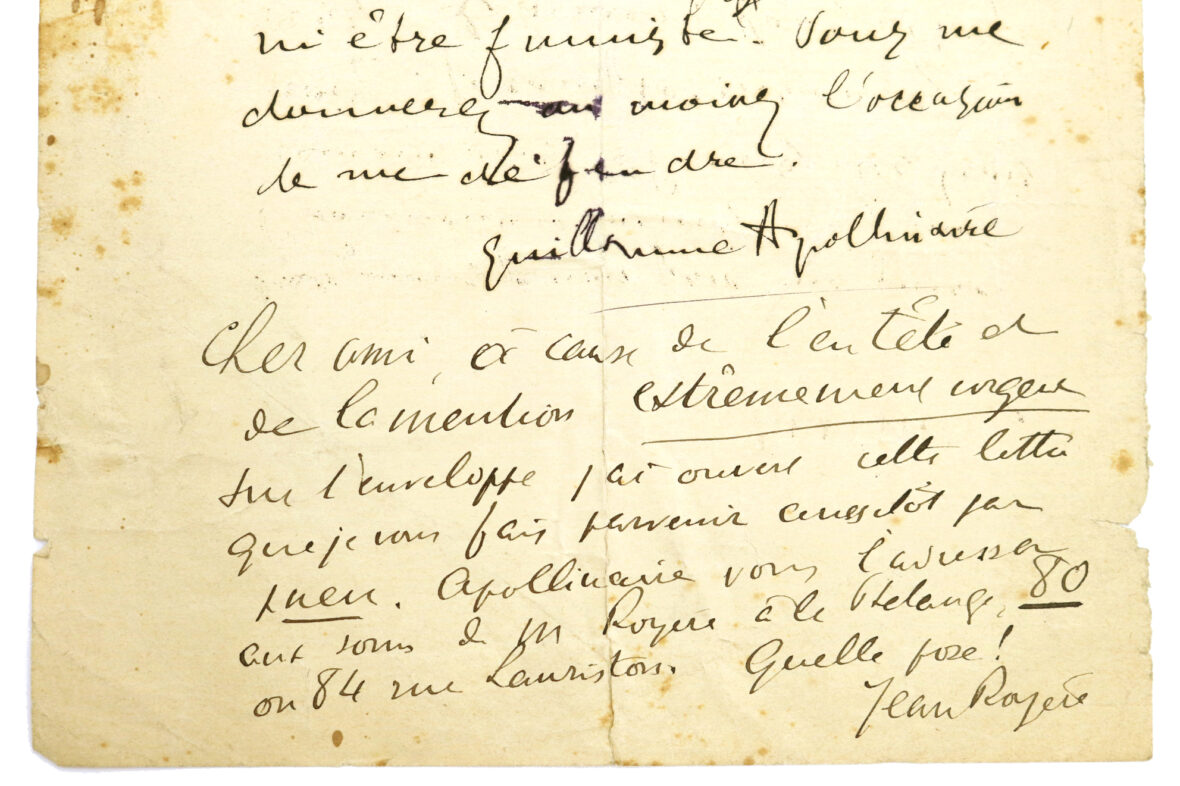 ni être fumiste. Vous me
donnerez au moins l'occasion
de me défendre.
Guillaume Apollinaire
Cher ami, à cause de l'entêté et
de la mention extrêmement urgent
sur l'enveloppe j'ai ouvert cette lettre
que je vous fais parvenir aussitôt par
pneu. Apollinaire vous l'adressa
aux soins de M Royère à la Phalange, 80
ou 84 rue Lauriston. Quelle pose!
Jean Royère